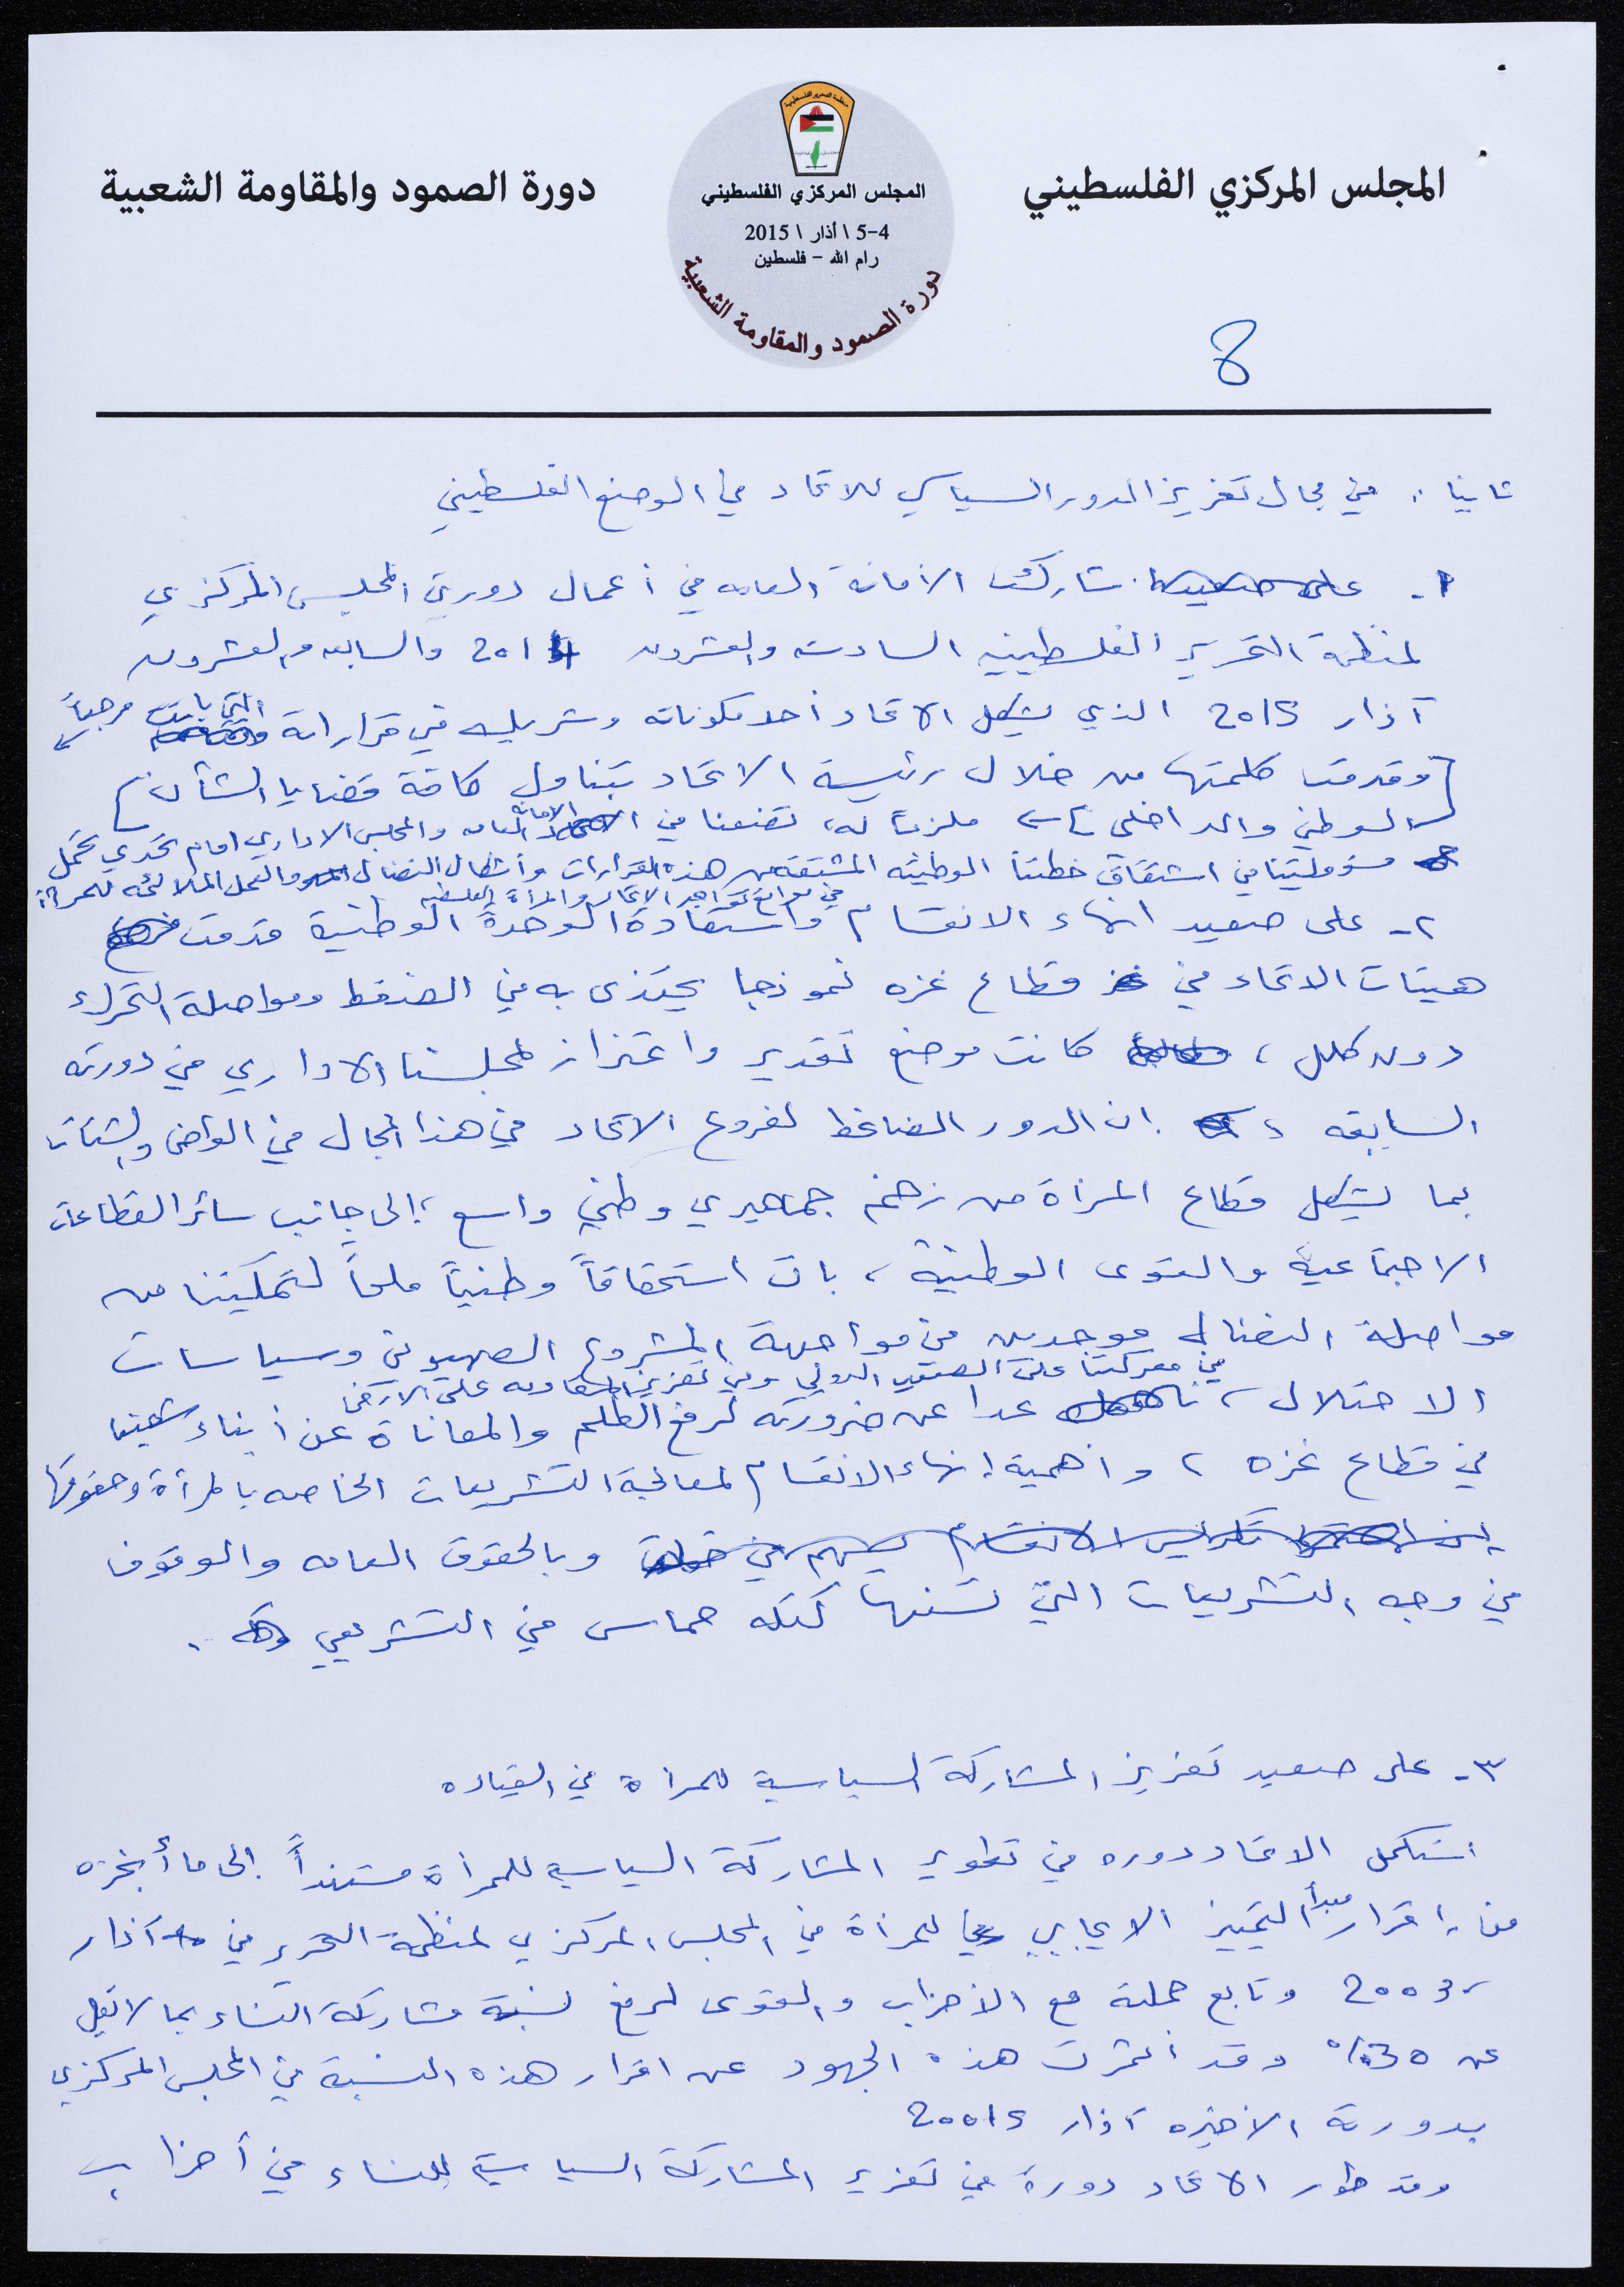 المجلس المركزي الفلسطيني
دورة الصمود والمقاومة الشعبية
منظمة التحرير الفلسطينية
المجلس المركزي الفلسطيني
4-5 \ أذار \ 2015
رام الله - فلسطين
دورة الصمود والمقاومة الشعبية
8
ثانيا : في مجال تعزيز الدور السياسي للاتحاد في الوضع الفلسطيني
1- شاركت الأمانة العامه في أعمال دورتي المجلس المركزي
لمنظمة التحرير الفلسطينيه السادسه والعشرون 2014 والسابعه والعشرون
آذار 2015 الذي يشكل الاتحاد أحد مكوناته وشريك في قراراته التي باتت مرجباً
[وقدمت كلمتها من خلال رئيسة الاتحاد تتناول كافة قضايا الشأن]
الوطني والداخلي ملزماً له، تضعنا في الأمانة العامه والمجلس الاداري امام تحدي تحمل
مسؤوليتنا في اشتقاق خطتنا الوطنيه المشتقه من هذه القرارات وأشكال النضال والعمل الملائمه للمرأة
في مواقع تواجد الاتحاد والمرأة الفلسطينيه
٢- على صعيد انهاء الانقسام واستعادة الوحدة الوطنية قدمت
هيئات الاتحاد في قطاع غزه نموذجا يحتذى به في الضغط ومواصلة التحرك
دون كلل ، كانت موضع تقدير واعتزاز لمجلسنا الاداري في دورته
السابقه ، ان الدور الضاغط لفروع الاتحاد في هذا المجال في الوطن والشتات
بما يشكل قطاع المرأة من زخم جماهيري وطني واسع ، إلى جانب سائر القطاعات
الاجتماعية والقوى الوطنية ، بات استحقاقاً وطنياً ملحاً لتمكيننا من
مواصلة النضال موحدين في مواجهة المشروع الصهيوني وسياسات
في معركتنا على الصعيد الدولي وفي تعزيز المقاومه على الارض
الاحتلال ، عدا عن ضرورته لرفع الظلم والمعاناة عن أبناء شعبنا
في قطاع غزه ، وأهمية إنهاء الانقسام لمعالجة التشريعات الخاصه بالمرأة وحقوقها
تكريس الانقسام يسهم في وبالحقوق العامه والوقوف
في وجه التشريعات التي تسنها كتله حماس في التشريعي .
٣- على صعيد تعزيز المشاركة السياسية للمرأة في القياده
استكمل الاتحاد دوره في تطوير المشاركة السياسية للمرأة مستنداً إلى ما أنجزه
من إقرار مبدأ التمييز الايجابي للمرأة في المجلس المركزي لمنظمة التحرير في آذار
2003 وتابع حملته مع الأحزاب والقوى لرفع نسبة مشاركة النساء بما لا تقل
عن 30% وقد أثمرت هذه الجهود عن اقرار هذه النسبة في المجلس المركزي
بدورته الأخيره آذار 20015
وقد طور الاتحاد دورة في تعزيز المشاركة السياسية للنساء في أحزاب